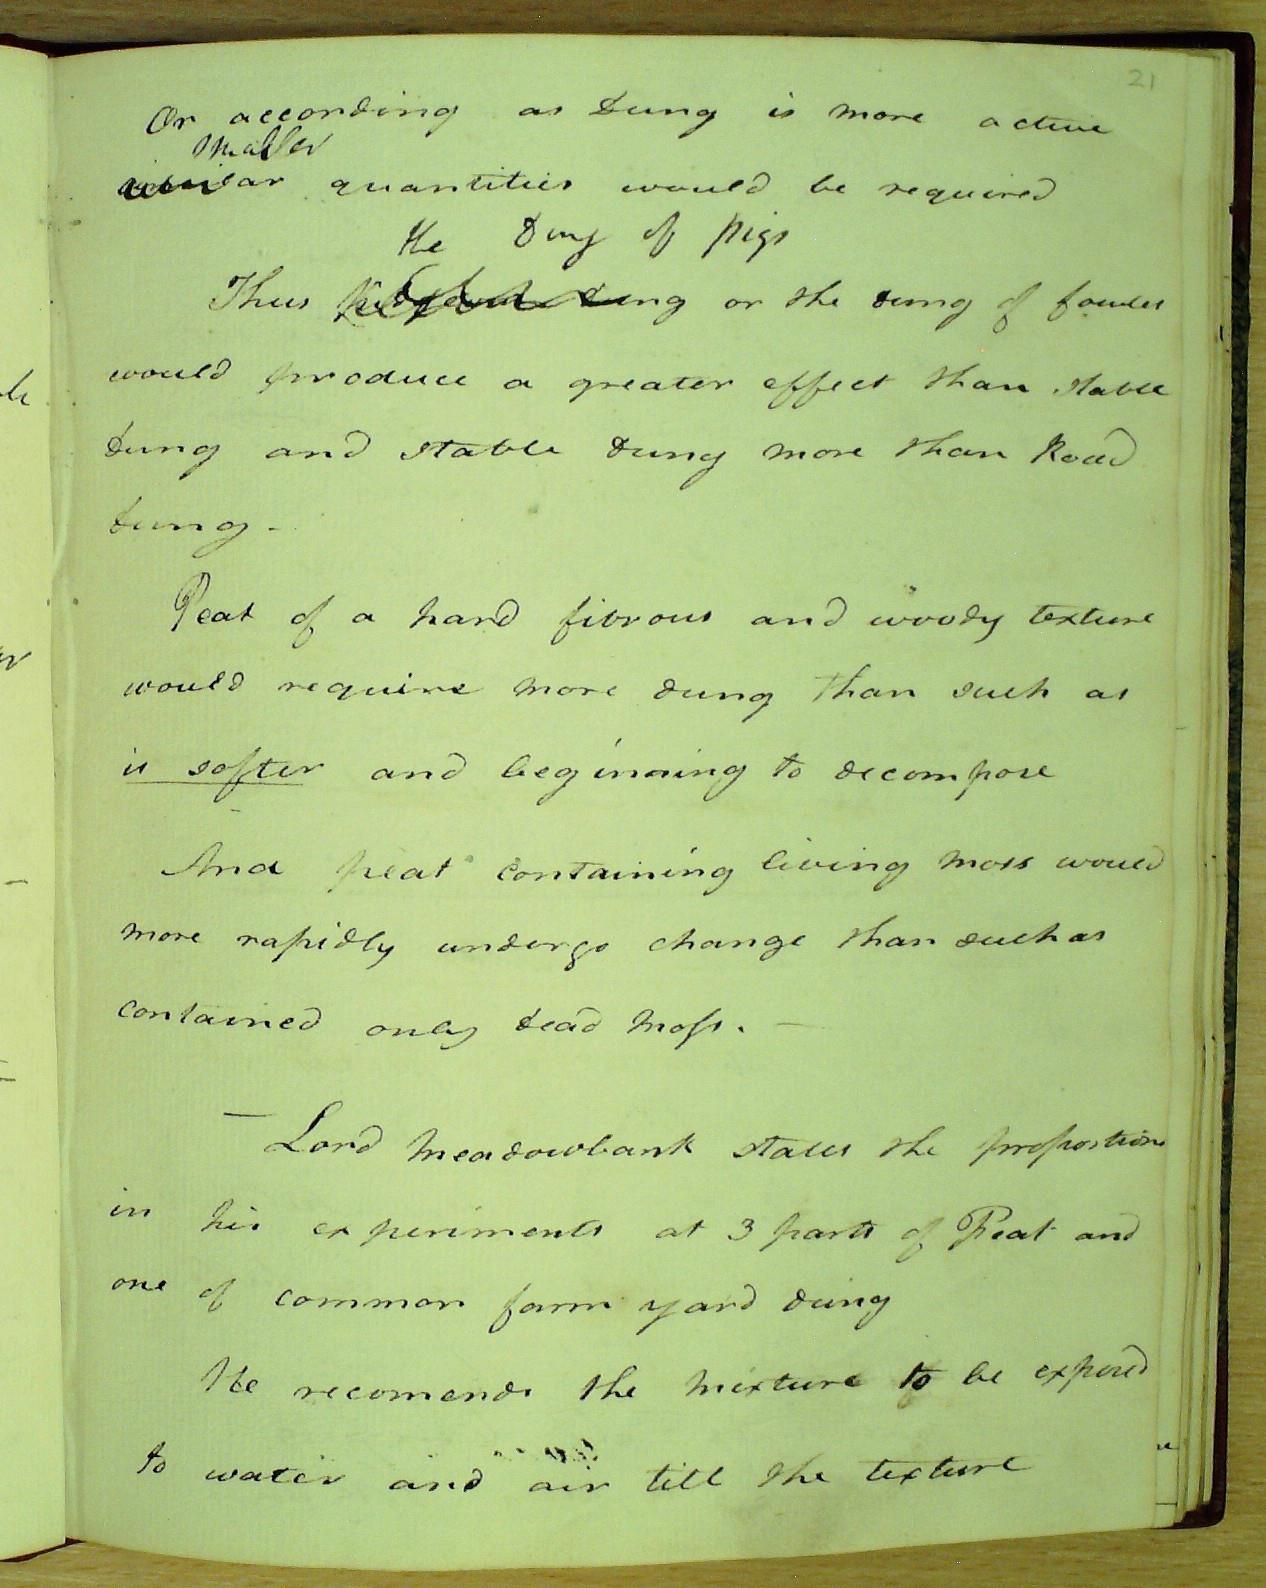 21
Or according as Dung is more active
smaller
similar quantities would be required
the Dung of pigs
Thus dung or the dung of fowles
would produce a greater effect than stable
dung and stable dung more than Road
dung -
Peat of a hard fibrous and woody texture
would require more dung than such as
is softer and beginning to decompose
And peat containing living moss would
more rapidly undergo change than such as
contained only dead moss. —
— Lord Meadowbank states the proportions
in his experiments at 3 parts of Peat and
one of common farm yard dung
He recomends the mixture to be exposed
to water and air till the texture